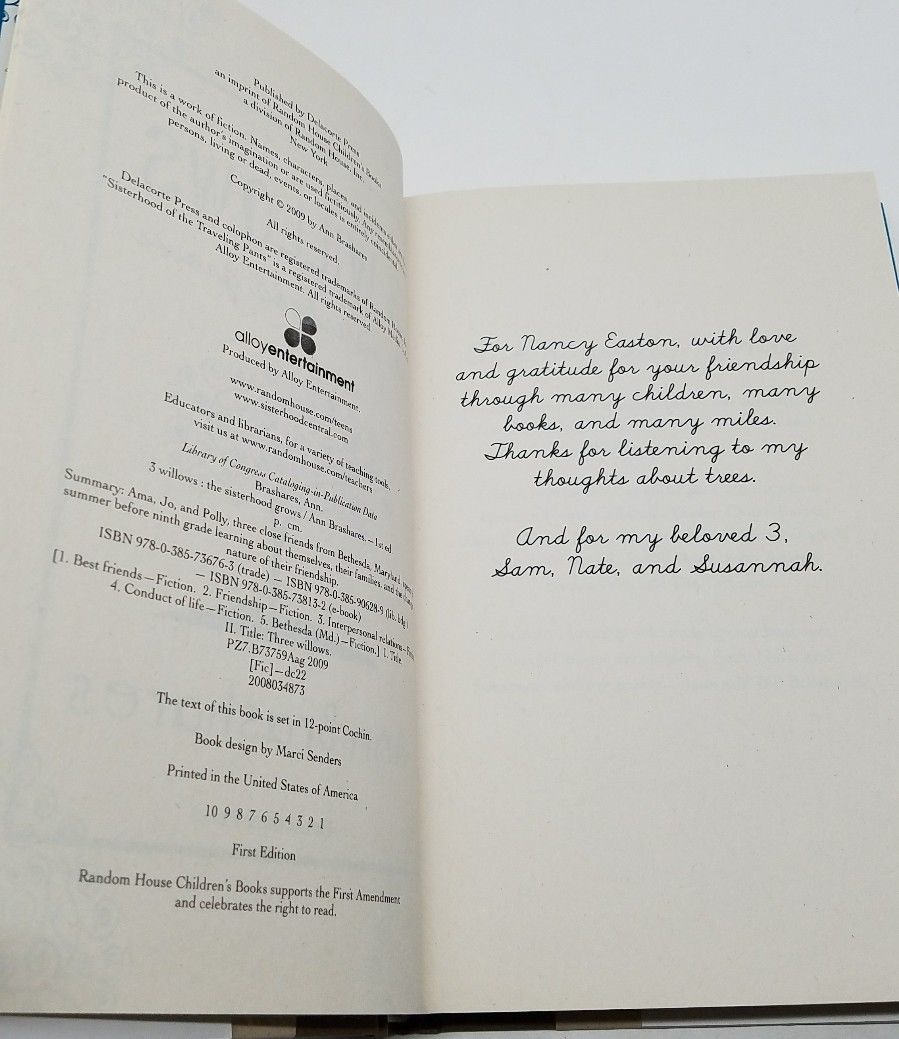 Published by Delacorte Press
an imprint of Random House Children's Books
a division of Random House, Inc.
New York
This is a work of fiction. Names, characters, places, and incidents
product of the author's imagination or are used fictitiously. Any
persons, living or dead, events, or locales is entirely coincidental.
Copyright © 2009 by Ann Brashares
All rights reserved.
Delacorte Press and colophon are registered trademarks of Random
"Sisterhood of the Traveling Pants" is a registered trademark of Alloy
Alloy Entertainment. All rights reserved.
alloyentertainment
Produced by Alloy Entertainment.
www.randomhouse.com/teens
www.sisterhoodcentral.com
Educators and librarians, for a variety of teaching tools,
visit us at www.randomhouse.com/teachers
Library of Congress Cataloging-in-Publication Data
Brashares, Ann.
3 willows : the sisterhood grows / Ann Brashares.—1st ed
p. cm.
Summary: Ama, Jo, and Polly, three close friends from Bethesda, Maryland,
summer before ninth grade learning about themselves, their families, and the
nature of their friendship.
ISBN 978-0-385-73676-3 (trade) — ISBN 978-0-385-90628-9 (lib. bdg.)
— ISBN 978-0-385-73813-2 (e-book)
[1. Best friends—Fiction. 2. Friendship—Fiction. 3. Interpersonal relations—
4. Conduct of life—Fiction. 5. Bethesda (Md.)—Fiction.] I. Title.
II. Title: Three willows.
PZ7.B73759Aag 2009
[Fic]—dc22
2008034873
The text of this book is set in 12-point Cochin.
Book design by Marci Senders
Printed in the United States of America
10 9 8 7 6 5 4 3 2 1
First Edition
Random House Children's Books supports the First Amendment
and celebrates the right to read.
For Nancy Easton, with love
and gratitude for your friendship
through many children, many
books, and many miles.
Thanks for listening to my
thoughts about trees.
And for my beloved 3,
Sam, Nate, and Susannah.